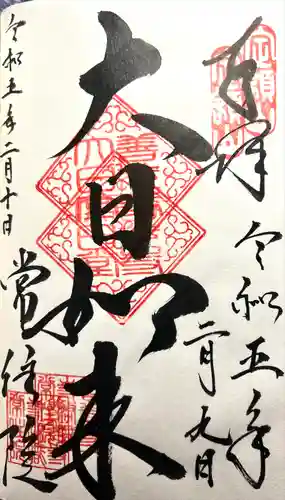 奉拝
令和五年
二月九日
大日如来
常住院
令和五年二月十日